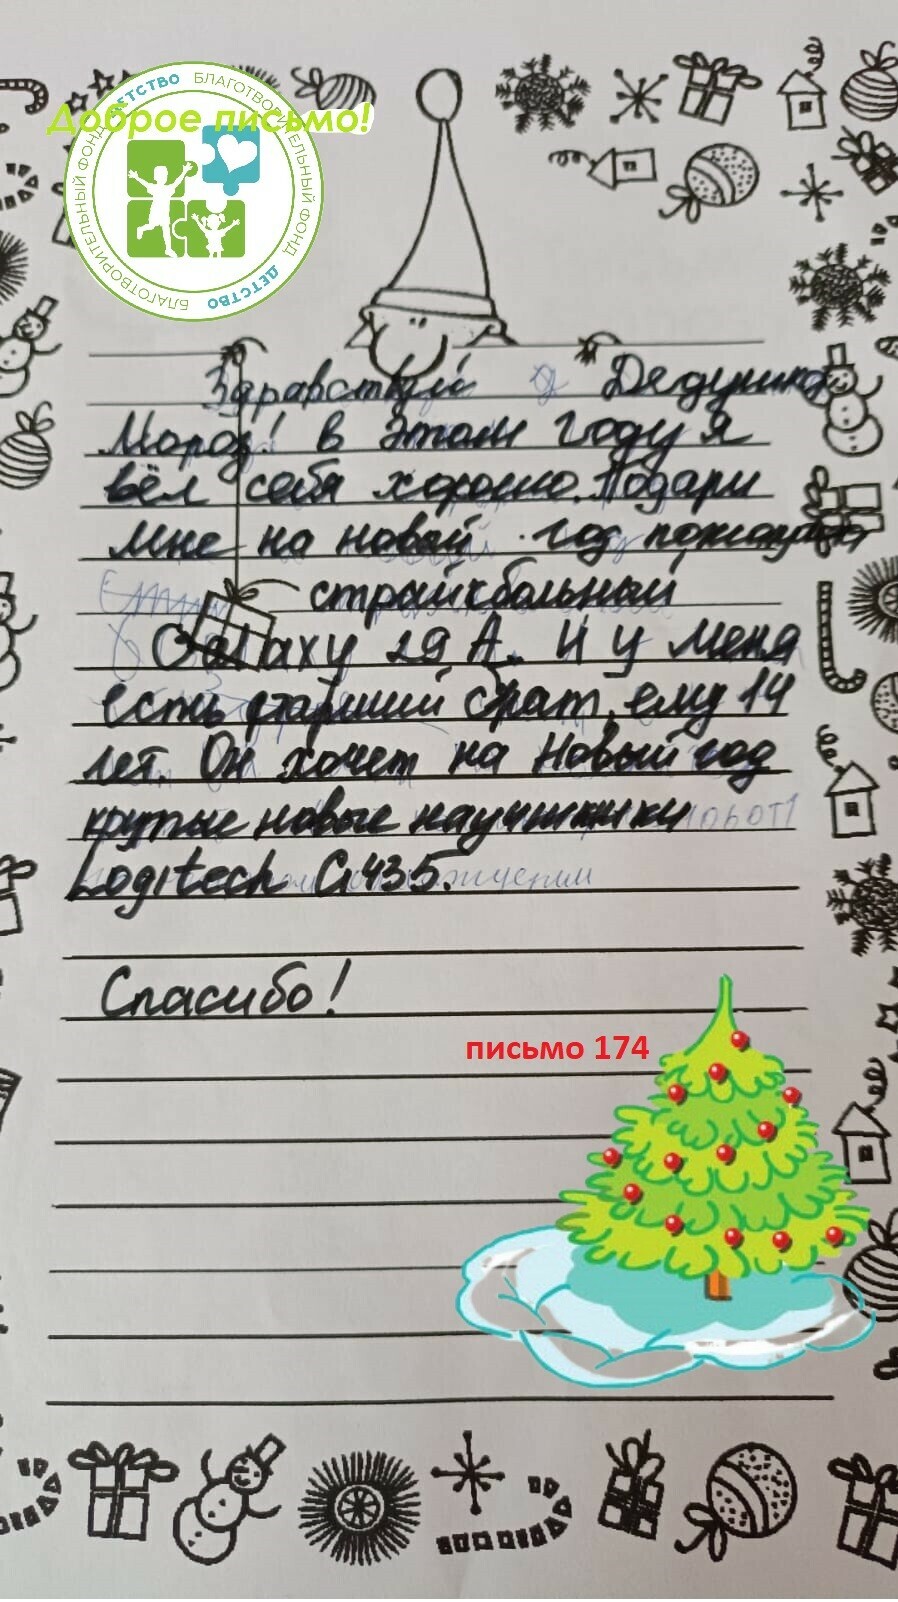 Доброе письмо!
БЛАГОТВОРИТЕЛЬНЫЙ ФОНД ДЕТСТВО БЛАГОТВОРИТЕЛЬНЫЙ ФОНД ДЕТСТВО
Здравствуй Дедушка
Мороз! в этом году я
вёл себя хорошо. Подари
мне на новый год пожалуйста
страйкбольный
Galaxy 29 A. И у меня
есть старший брат, ему 14
лет. Он хочет на Новый год
крутые новые научшники
Logitech G435.
Спасибо!
письмо 174